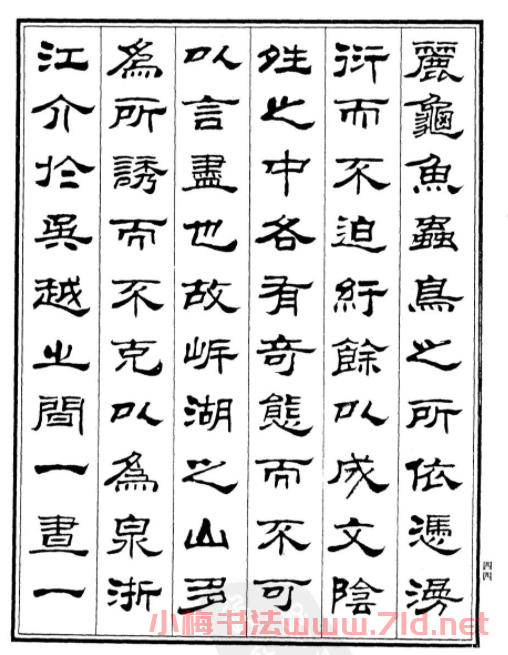 麗龜魚蟲鳥之所依憑漫
衍而不迫紆餘以成文陰
姓之中各有奇態而不可
以言盡也故岍湖之山多
為所誘而不克以為泉浙
江介於吳越之間一晝一
四四
小梅书法www.7ld.net